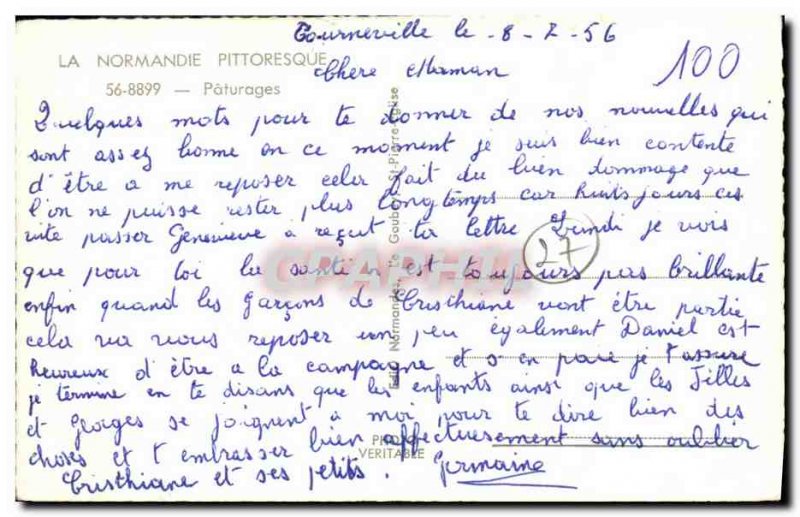 Tourneville le -8-7-56
LA NORMANDIE PITTORESQUE
56-8899 — Pâturages
100
Chère Maman
Quelques mots pour te donner de nos nouvelles qui
sont assez bonne en ce moment je suis bien contente
d'être a me reposer celer fait du bien dommage que
l'on ne puisse rester plus longtemps car huits jours ces
vite passer Geneviève a reçut ta lettre Lundi je vois
27
que pour toi la santé est toujours pas brillante
enfin quand les garçons de Cristhiane vont être partie
cela va vous reposer un peu également Daniel est
heureux d'être a la campagne et s en paie je t'assure
je termine en te disans que les enfants ainsi que les Filles
et Georges se joignent a moi pour te dire bien des
choses et t embrasser bien affectuesement sans oublier
Cristhiane et ses petits. Germaine
Edit. Normandes, Le Goubey, St-Pierre-Eglise
VERITABLE